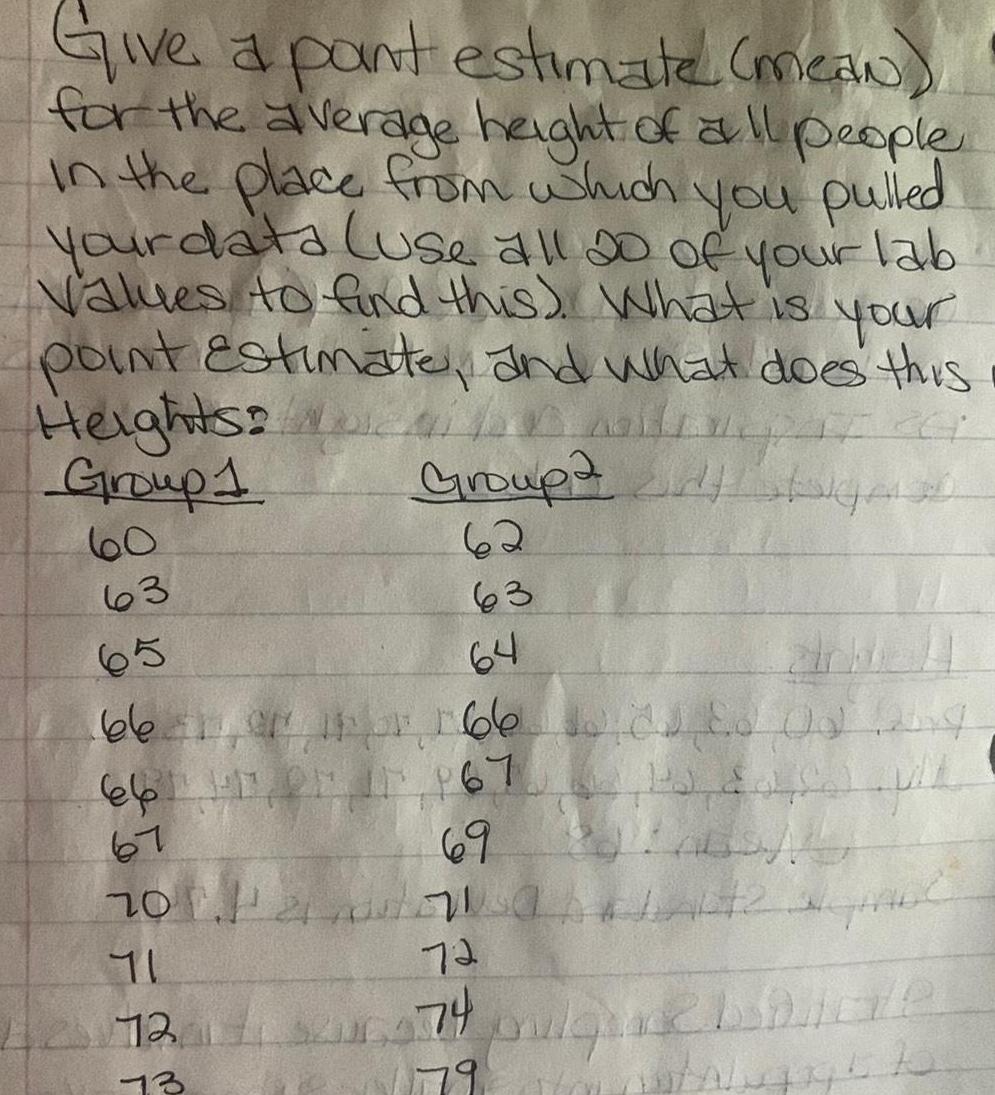 Give a point estimate (mean)
for the average height of all people
in the place from which you pulled
your data (use all 20 of your lab
values to find this). What is your
point estimate, and what does this
Heights:
Group 1 Group 2
60 62
63 63
65 64
66 66
66 67
67 69
70 71
71 72
72 74
73 79